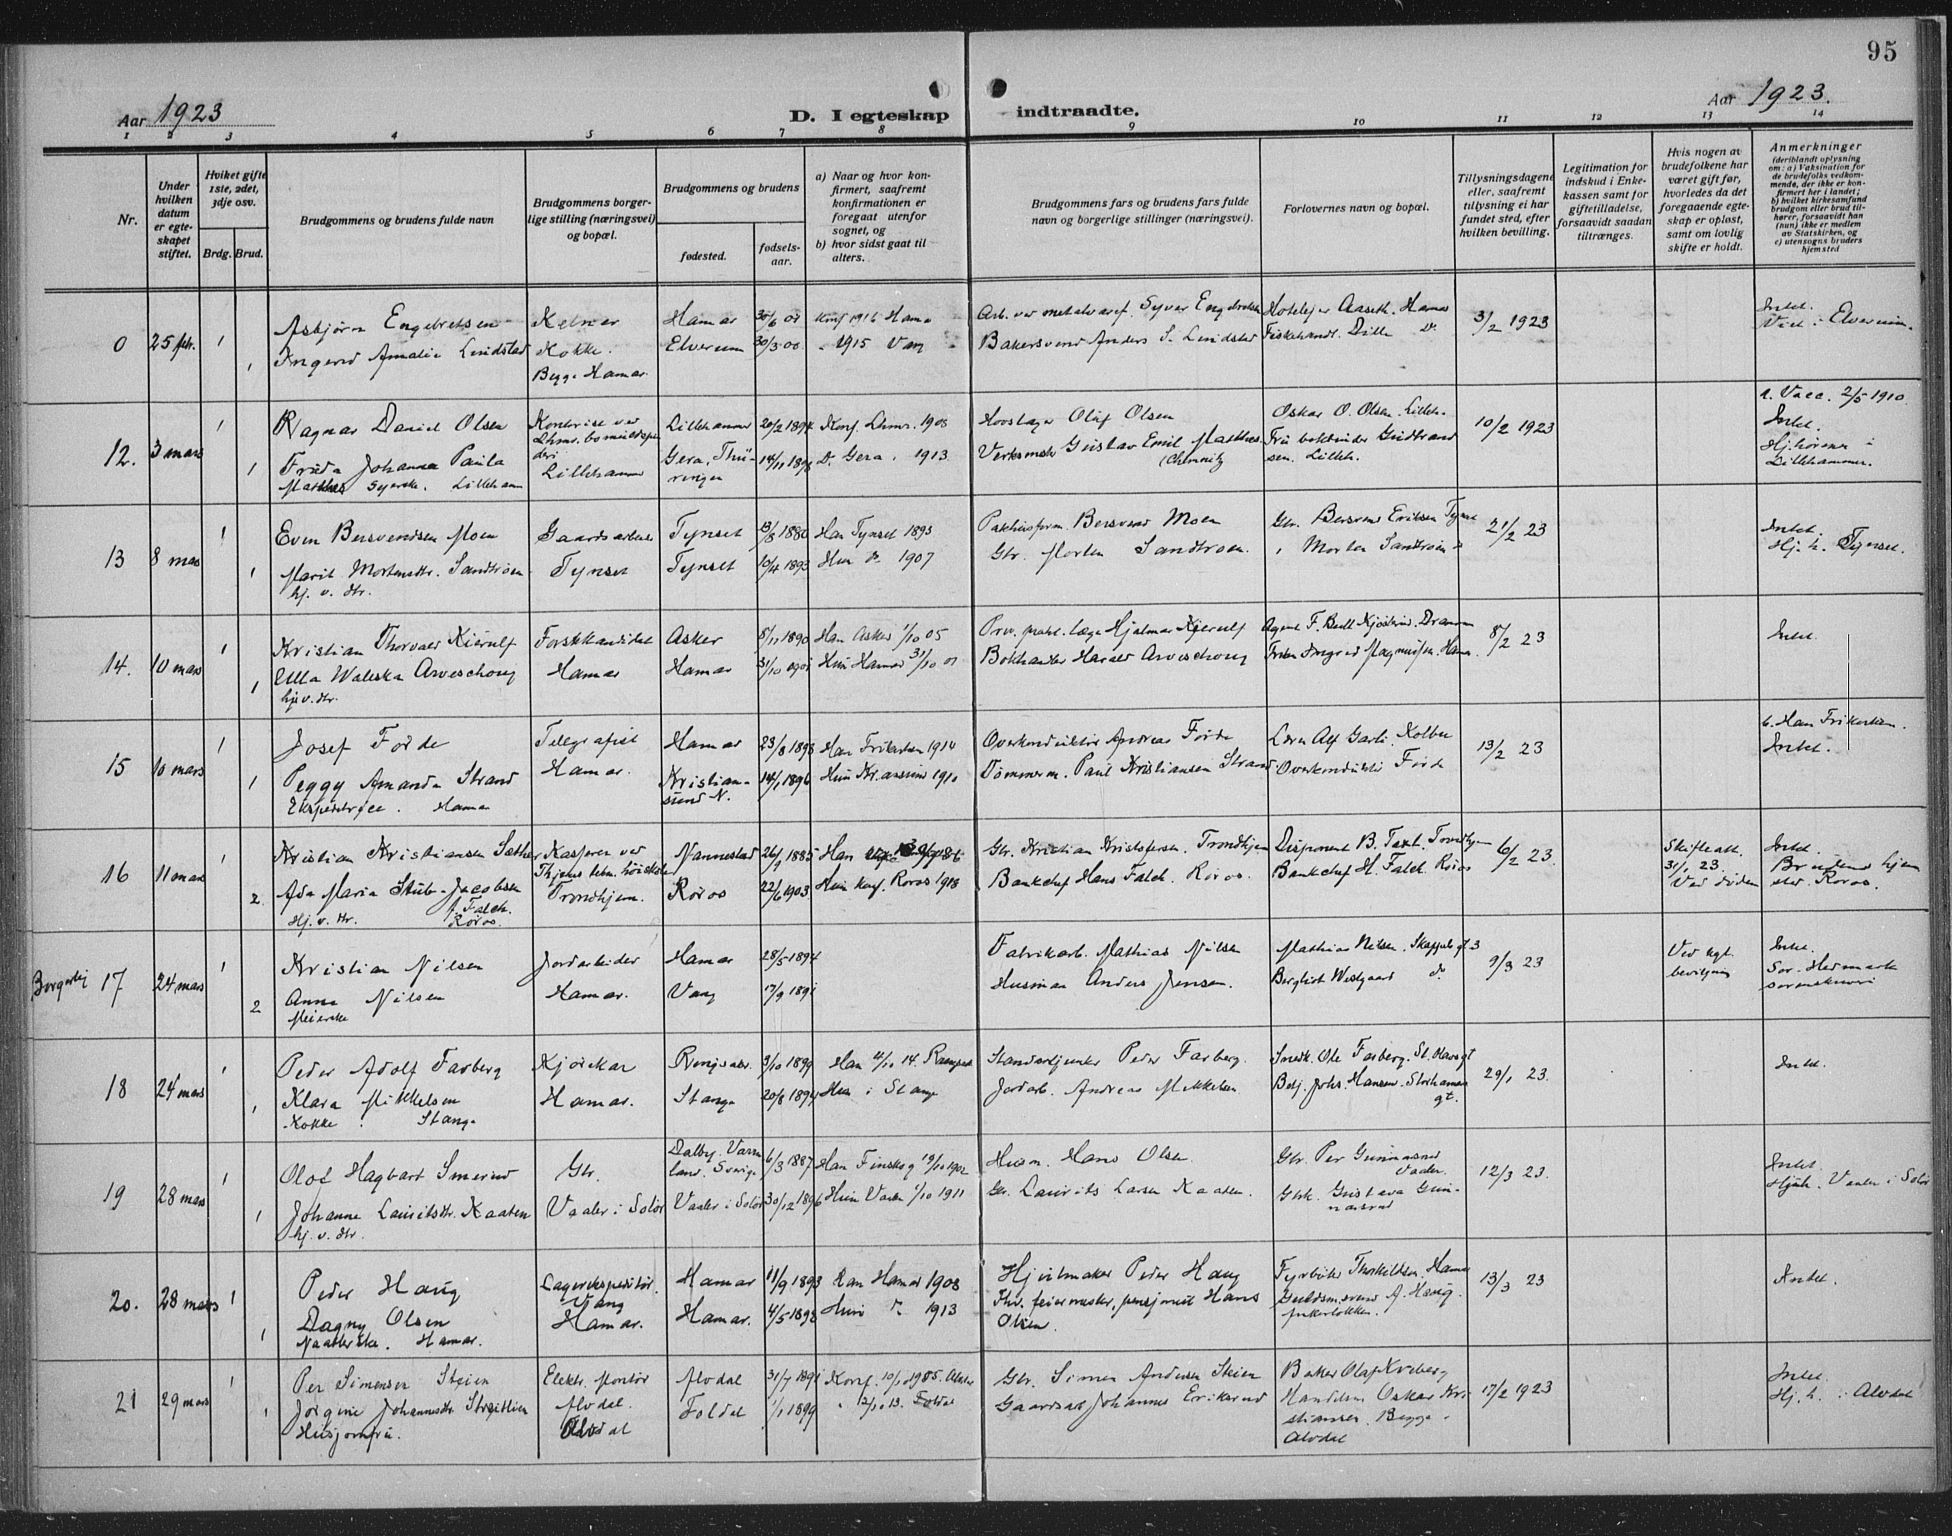 95
Aar 1923
D. I egteskap indtraadte.
Aar 1923.
1 2 3 4 5 6 7 8 9 10 11 12 13 14
Nr.
Under hvilken datum er egteskapet stiftet.
Hviket gifte 1ste, 2det, 3dje osv.
Brdg. Brud.
Brudgommens og brudens fulde navn
Brudgommens borgerlige stilling (næringsvei) og bopæl.
Brudgommens og brudens
fødested.
fødselsaar.
a) Naar og hvor konfirmert, saafremt konfirmationen er foregaat utenfor sognet, og
b) hvor sidst gaat til alters.
Brudgommens fars og brudens fars fulde navn og borgerlige stillinger (næringsvei).
Forlovernes navn og bopæl.
Tillysningsdagene eller, saafremt tillysning ei har fundet sted, efter hvilken bevilling.
Legitimation for indskud i Enkekassen samt for giftetilladelse, forsaavidt saadan tiltrænges.
Hvis nogen av brudefolkene har været gift før, hvorledes da det foregaaende egteskap er opløst, samt om lovlig skifte er holdt.
Anmerkninger
(deriblandt oplysning om: a) Vaksination for de brudefolks vedkommende, der ikke er konfirmert her i landet; b) hvilket kirkesamfund brudgom eller brud tilhører, forsaavidt han (hun) ikke er medlem av Statskirken, og c) utensogns bruders hjemsted
0 25 feb. 1 Asbjørn Engebretsen Kelner Hamar Konf 1916 Hama Syver Engebretsen Hotelejer Aaseth. Hamar 3/2 1923 Intet.
1 Ingerid Amalie Lindstad Kokke. Elverum 30/3 00 " 1915 Vang Bakersvend Anders S. Lindstad Fiskehandl. Lille Do Viet i Elverum.
Begge Hamar.
12. 3 mars 1 Ragnar Daniel Olsen Lillehammer 20/2 1894 Konf. Lhmr. 1908 Oluf Olsen Oskar O. Olsen. Lilleh. 10/2 1923 a. Vacc. 2/5 1910
1 Frida Johanna Paula Lillehammer Gera, Thüringen D. Gera. 1913 Gustav Emil Matthes (Chemnitz Intet.
Matthes Syerske. Lilleham Lillehammer.
13 8 mars 1 Even Bersvendsen Moen Gaardsarbeider Tynset 1880 Han Tynset 1895 Bersvend Moen Gbr. Bersvend Eriksen Tynset 21/2 23 Intet.
1 Marit Mortensdtr. Sandtrøen Tynset Tynset 10/4 1893 Hun Do 1907 Gbr. Morten Sandtrøen. " Morten Sandtrøen Do Hj. h. Tynset.
hj. v. dtr.
14. 10 mars 1 Kristian Thorvald Kierulf Forstkandidat Asker 5/11 1890 Han Asker 1/10 05 Hjalmar Kjerulf Agent F. Bull Kjøstrud. Drammen 8/2 23 Intet.
1 Ulla Waleska Arveschoug Hamar Hamar 31/10 Hun Hamar Bokhandler Harald Arveschoug Frøken Ingrid Magnussen. Hamar.
hj. v. dtr.
15 10 mars 1 Josef Førde Telegrafist Hamar 23/8 1898 Han Frikirken 1914 Overkonduktør Andreas Førde Alf Garli. Kolbu 13/2 23 b. Han Frikirken.
1 Peggy Amanda Strand Hamar. Kristiansund N. 14/1 1896 1910 Tømmerm. Paul Kristiansen Strand Overkonduktør Førde Intet.
Ekspeditrice. Hamar
16 11 mars 1 Kristian Kristiansen Sæther Kasserer ved Nannestad 1885 Han Gbr. Kristian Kristofersen. Trondhjem Disponent B. Taxt. Trondhjem 6/2 23. Skifteatt. 31/1 23. Ved døden Intet.
2 Ada Maria Stub-Jacobsen f. Falch. Røros. Thjems tekn. høiskole Trondhjem. Røros 22/6 1903 Hun konf. Røros 1918 Bankchef Hans Falch. Røros. Bankchef H. Falch. Røros Brudens hjemsted Røros.
Hj. v. dtr.
Borgerlig 17 24 mars 1 Kristian Nilsen Jordarbeider Hamar 28/5 1894 Fabrikarb. Mathias Nilsen Mathias Nilsen. Skappels gt 3 9/3 23 Ved kgl. bevilgning Intet.
2 Anna Nilsen Hamar. Vang 17/9 1891 Husman Anders Jensen. Bergliot Westgaard do Sør-Hedmark sorenskriveri
Meierske
18 24 mars 1 Peder Adolf Farberg Kjørekar Ringsaker. 3/10 1899 Han 4/10 14. Peder Farberg. Snedk. Ole Farberg. St. Olavs gt 29/1 23. Intet.
1 Klara Mikkelsen Hamar. Stange 20/8 1894 Hun i Stange Jordarb. Andreas Mikkelsen Johs. Hansen. Storhamar gt.
Kokke. Stange
19 28 mars 1 Olof Hagbart Smerud Gbr. Dalby. Värmland. Sverige 6/3 1887 Han Finskog 19/10 1902 Husm. Hans Olsen Gbr. Per Gunnarsrud Vaaler. 12/3 23. Intet.
1 Johanne Lauritsdtr. Kaaten Vaaler i Solør Vaaler i Solør 30/12 1896 Hun Vaaler 1/10 1911 Gbr. Laurits Larsen Kaaten. Gustava Gunnarsrud Hjh. Vaaler i Solør
hj. v. dtr.
20. 28 mars 1 Peder Haug Lagerekspeditør. Vang Hamar 11/9 1893 Han Hamar 1908 Hjulmaker Peder Haug Fyrbøter Thorkildsen. Hamar 13/3 23 Intet.
1 Dagny Olsen Hamar. Hamar. 4/5 1898 Hun Do 1913 feiermester, pensjonert Hans Olsen. Guldsm.svend A. Haug.
Naatlerske. Hamar.
21 29 mars 1 Per Simensen Steien Elektr. Montør Alvdal 31/7 1891 Konf. 10/1 1905. Alvdal Gbr. Simen Andersen Steien Baker Olaf Kveberg 17/2 1923 Intet.
1 Jørgine Johannesdtr. Streitlien Alvdal. Foldal 1/1 1899 " 12/10 13. Foldal Johannes Eriksrud Oskar Kristiansen. Begge. Hj. h. i Alvdal
Husjomfru. Alvdal Alvdal